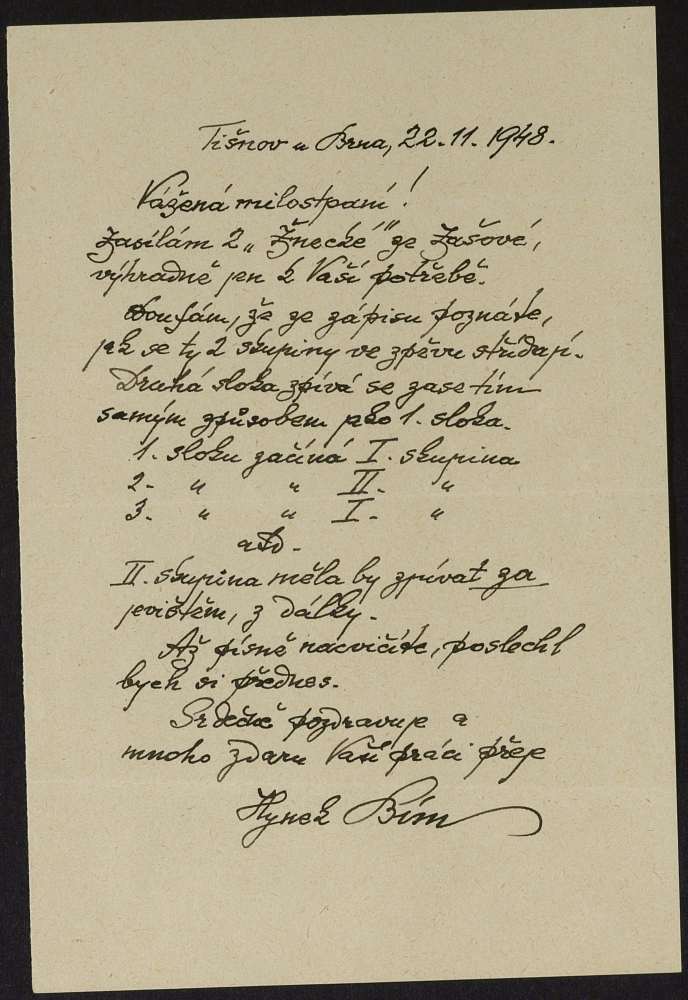 Tišnov u Brna, 22. 11. 1948.
Vážená milostpaní!
Zasílám 2 „Žnecké“ ze Zašové,
výhradně jen k Vaší potřebě.
Doufám, že ze zápisu poznáte,
jak se ty 2 skupiny ve zpěvu střídají.
Druhá sloka zpívá se zase tím
samým způsobem jako 1. sloka.
1. sloku začíná I. skupina
2. " " II. "
3. " " I. "
atd.
II. skupina měla by zpívat za
jevištěm, z dálky.
Až písně nacvičíte, poslechl
bych si přednes.
Srdečně pozdravuje a
mnoho zdaru Vaší práci přeje
Hynek Bím